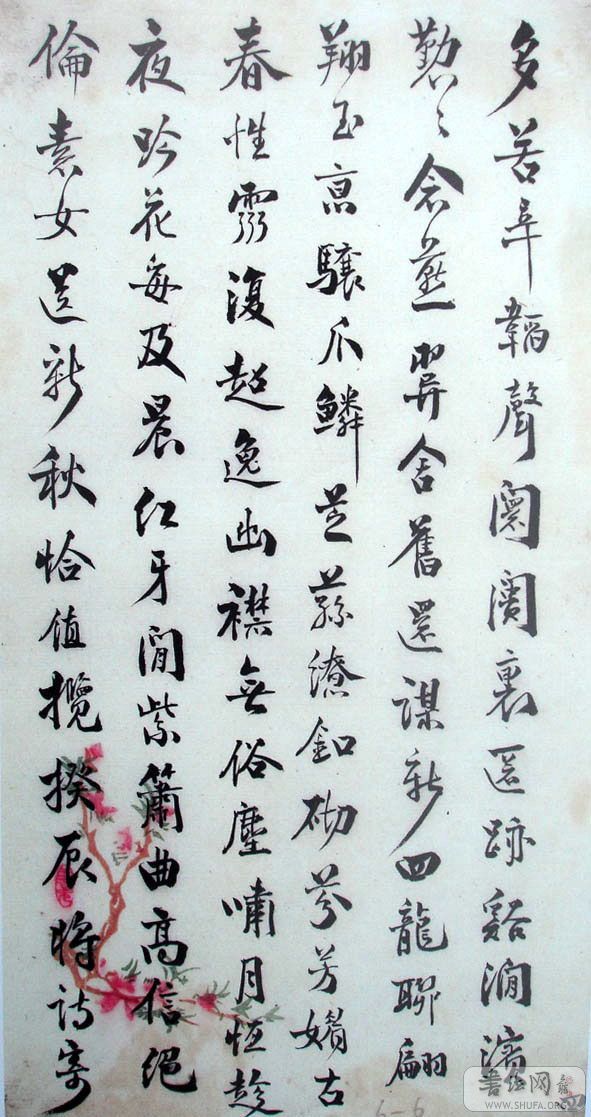 多苦辛韜聲闤闠裏匿跡谿澗濱
勤々念燕翼舍舊還謀新四龍聯翩
翔玉京驤爪鱗芝蓀繚釦砌芬芳媚古
春性靈復超逸幽襟無俗塵嘯月恆趁
夜吟花每及晨紅牙閒紫簫曲高信絕
倫素女送新秋恰值攬揆辰將詩寄
书法网
WWW.SHUFA.ORG